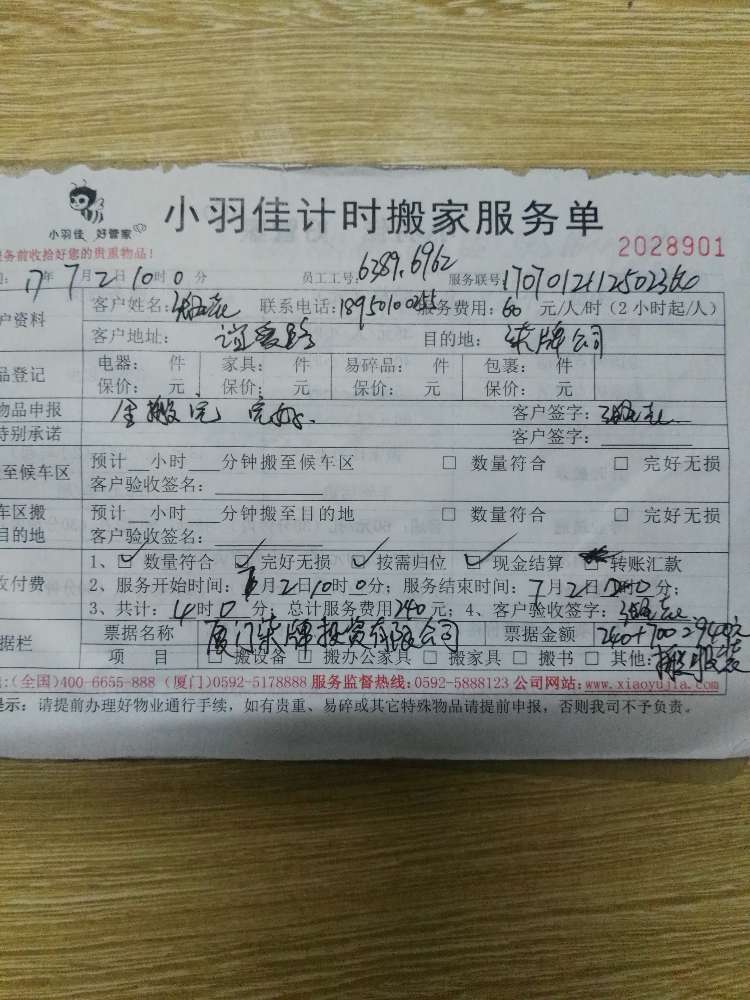 小羽佳 好管家
小羽佳计时搬家服务单
2028901
务前收拾好您的贵重物品！
17年7月2日10时0分 员工工号：6389.6962 服务联号
户资料 客户姓名： 联系电话：18950100255 服务费用：60 元/人/时（2小时起/人）
客户地址：谊爱路 目的地：柒牌公司
品登记 电器： 件 家具： 件 易碎品： 件 包裹： 件
保价： 元 保价： 元 保价： 元 保价： 元
物品申报 全搬完 完好. 客户签字：
特别承诺 客户签字：
至候车区 预计__小时__分钟搬至候车区 □ 数量符合 □ 完好无损
客户验收签名：
车区搬 预计__小时__分钟搬至目的地 □ 数量符合 □ 完好无损
目的地 客户验收签名：
1、☑ 数量符合 ☑ 完好无损 ☑ 按需归位 ☑ 现金结算 转账汇款
付费 2、服务开始时间：7月2日10时0分；服务结束时间：7月2日 时0分；
3、共计：4时0分；总计服务费用240元；4、客户验收签字：
据栏 票据名称 厦门柒牌投资有限公司 票据金额 240+700=940元
项 目 □ 搬设备 □ 搬办公家具 □ 搬家具 □ 搬书 □ 其他：搬服装
:(全国)400-6655-888 (厦门)0592-5178888 服务监督热线:0592-5888123 公司网站:www.xiaoyujia.com
提示：请提前办理好物业通行手续，如有贵重、易碎或其它特殊物品请提前申报，否则我司不予负责。